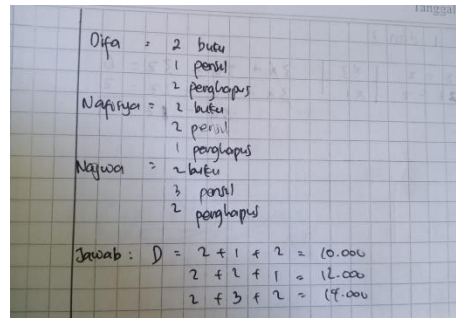 Tanggal
Difa = 2 buku
1 pensil
2 penghapus
Nafisya = 2 buku
2 pensil
1 penghapus
Najwa = 2 buku
3 pensil
2 penghapus
Jawab : D = 2 + 1 + 2 = 10.000
2 + 2 + 1 = 12.000
2 + 3 + 2 = 14.000